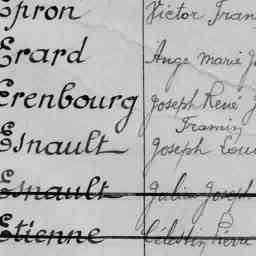 Epron Victor Fran
Erard Ange Marie J
Erenbourg Joseph René J
Framin
Esnault Joseph Loui
Esnault Julien Joseph
Etienne Célestin Pierre